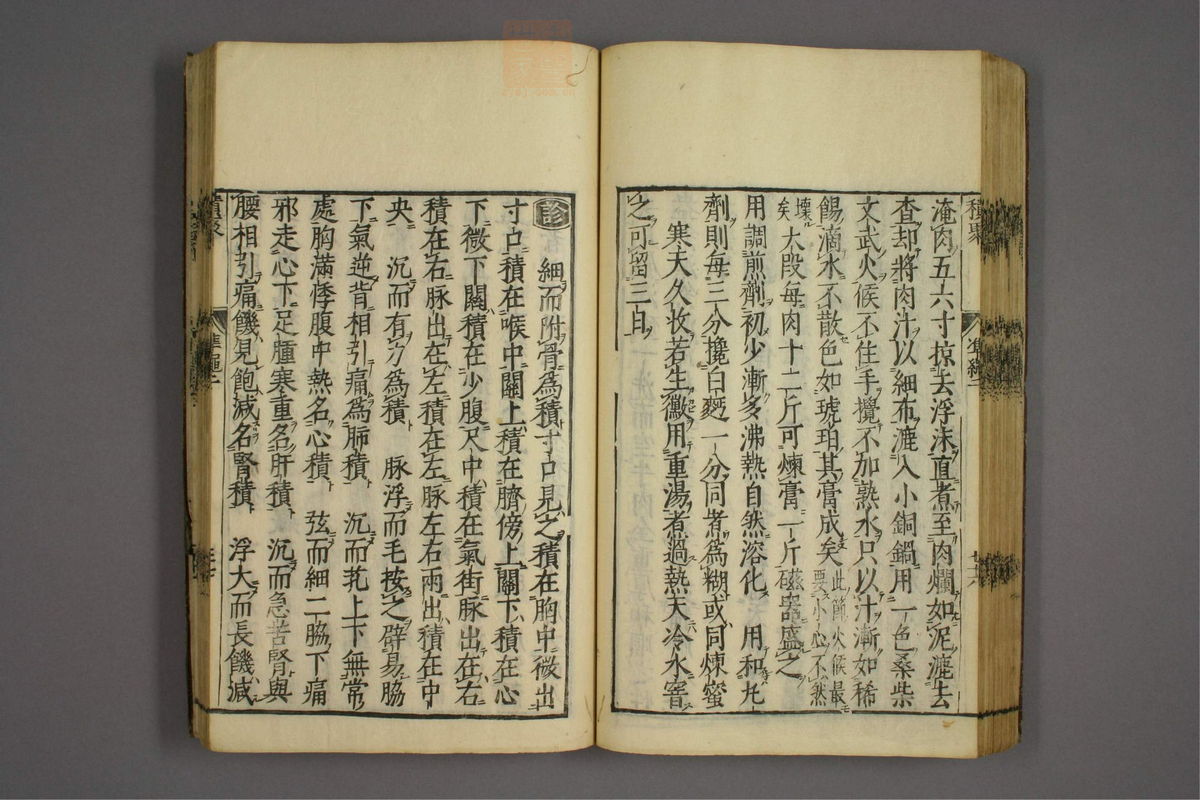 淹肉五六寸掠去浮沫直煮至肉爛如泥漉去
查却將肉汁以細布漉入小銅鍋用一色桑柴
文武火候不住手攪不加熟水只以汁漸如稀
餳滴水不散色如琥珀其膏成矣此節火候最要小心不然
壞矣大段每肉十二斤可煉膏一斤磁器盛之
用調煎劑初少漸多沸熱自然溶化 用和丸
劑則每三分攙白麪一分同煮為糊或同煉蜜
寒天久收若生黴用重湯煮過熱天冷水窨
之可留三日
診 細而附骨爲積寸口見之積在胸中微出
寸口積在喉中關上積在臍傍上關下積在心
下微下關積在少腹尺中積在氣街脉出在右
積在右脉出在左積在左脉左右兩出積在中
央 沉而有力爲積 脉浮而毛按之辟易脇
下氣逆背相引痛爲肺積 沉而芤上下無常
處胸滿悸腹中熱名心積 弦而細二脇下痛
邪走心下足腫寒重名肝積 沉而急苦腎與
腰相引痛饑見飽減名腎積 浮大而長饑減
積聚
準繩二